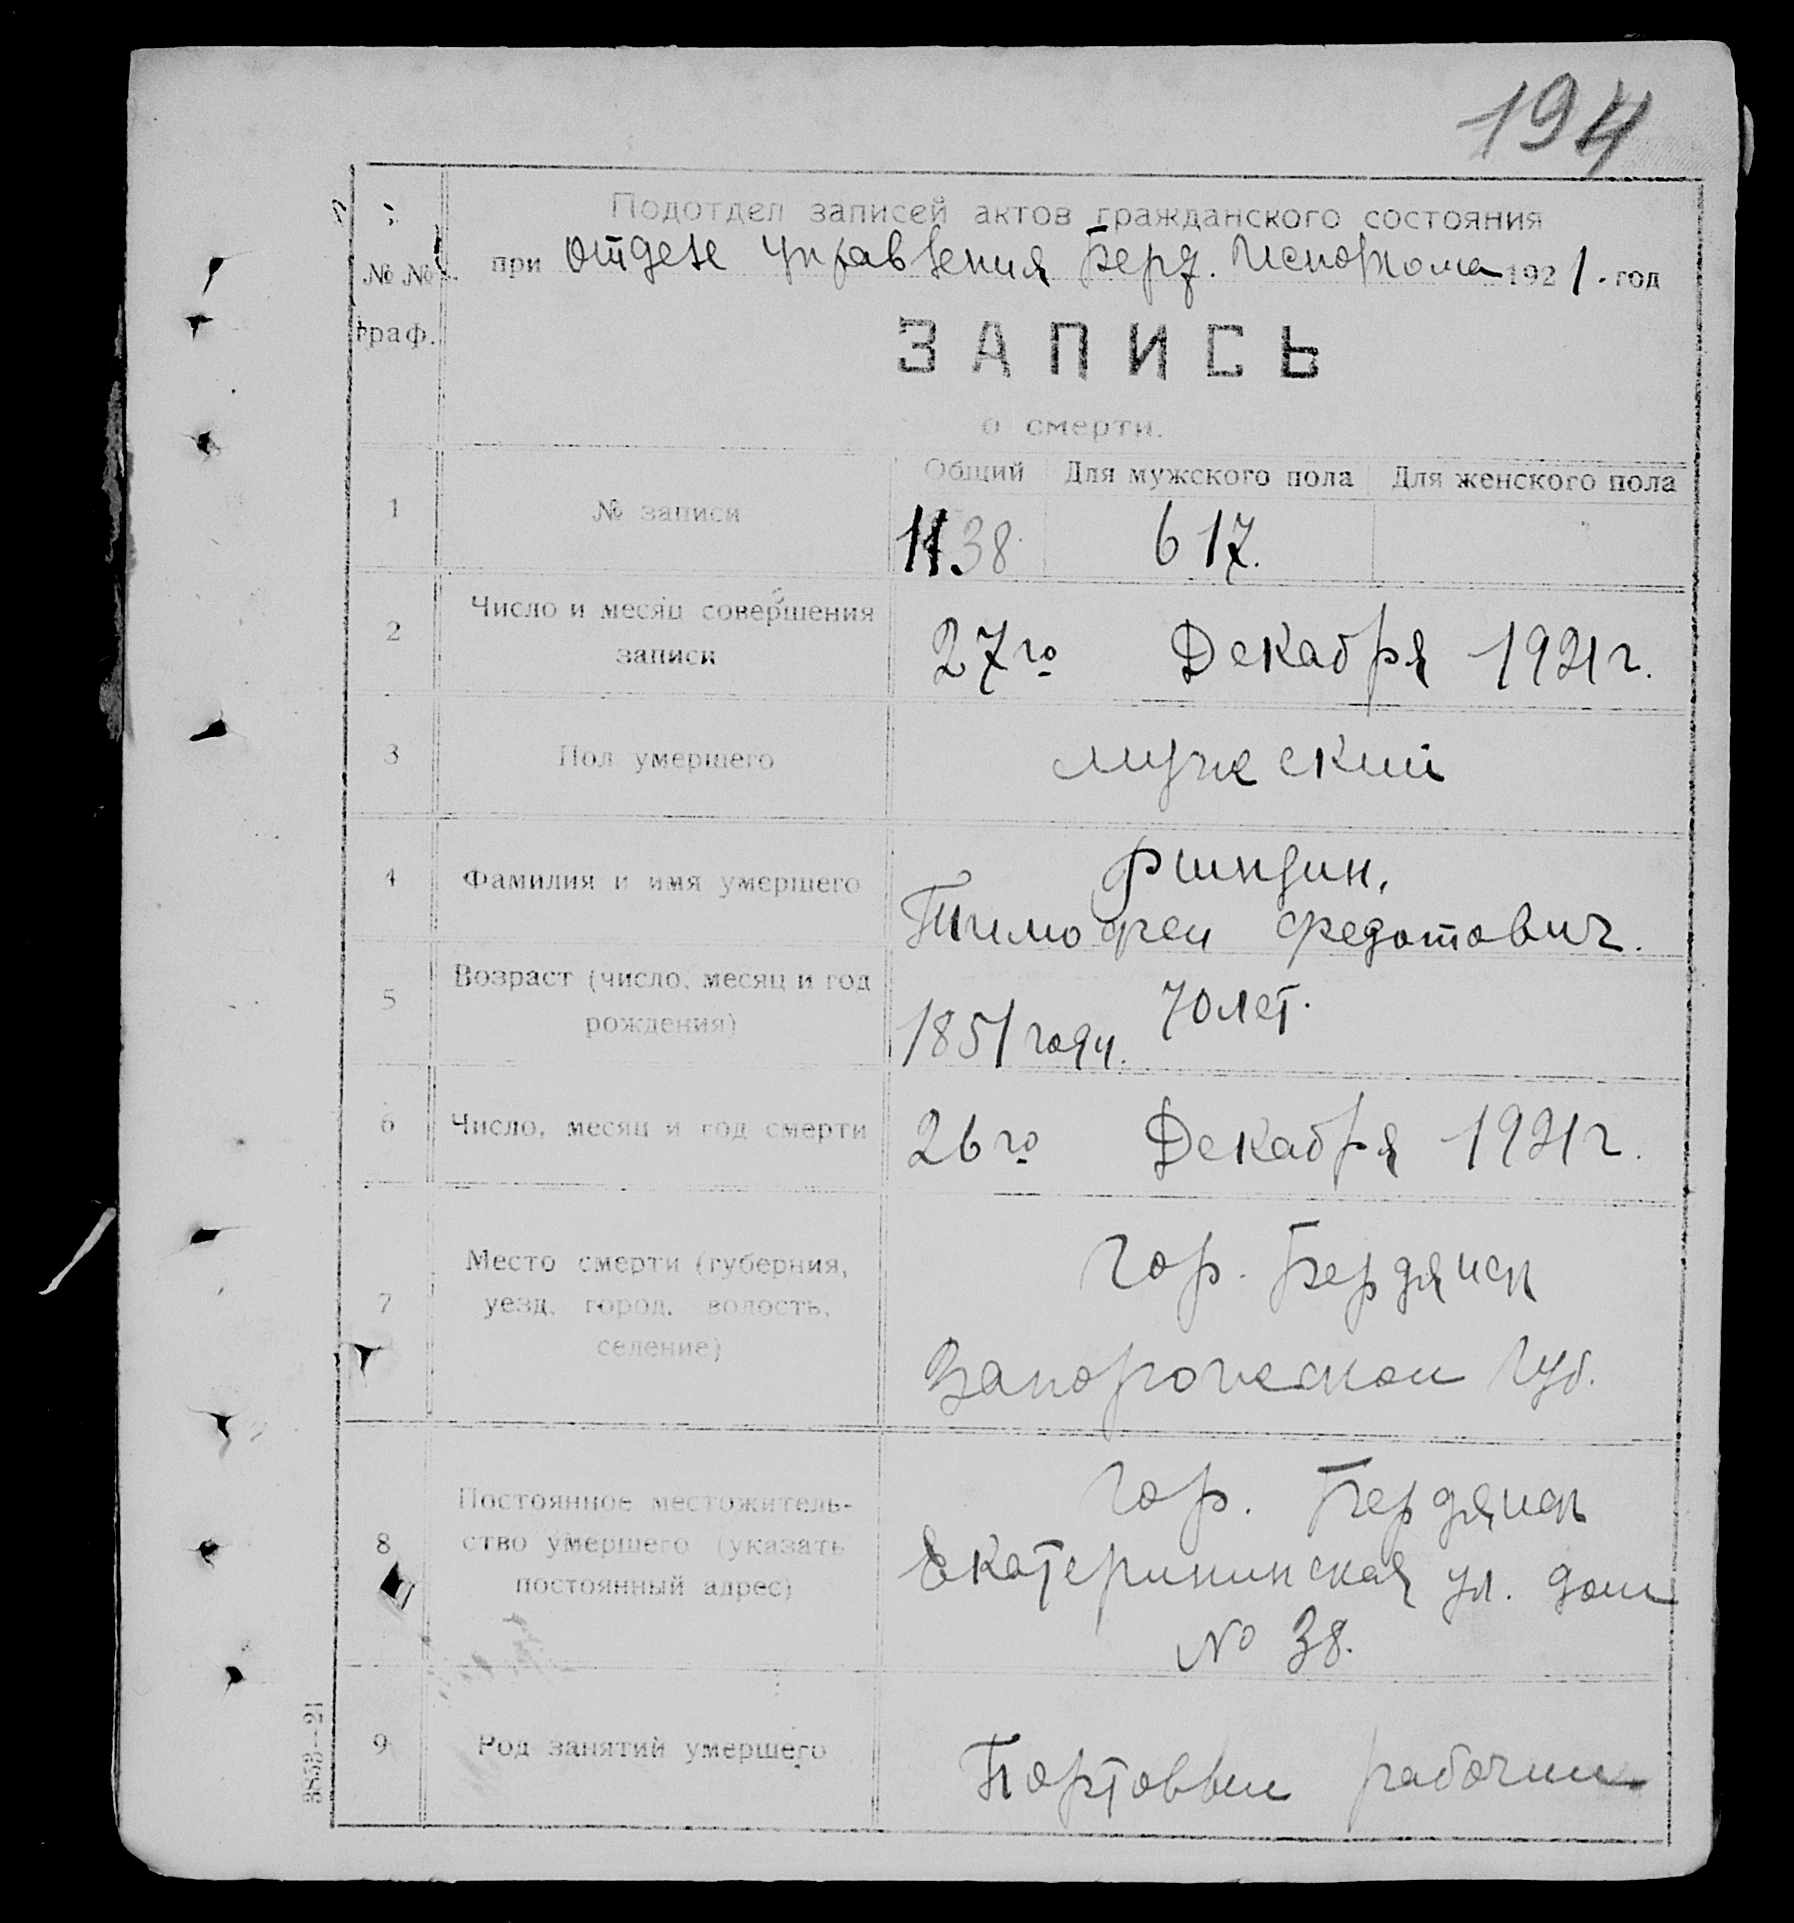 194
Подотдел записей актов гражданского состояния
№ №
граф.
при Отделе Управления Берд. Исполкома 1921. год
ЗАПИСЬ
о смерти.
Общий Для мужского пола Для женского пола
1 № записи 1138 617.
2 Число и месяц совершения
записи
27го Декабря 1921г.
3 Пол умершего мужеский
4 Фамилия и имя умершего
Финдин,
Тимофеи Федотович.
5 Возраст (число, месяц и год
рождения)
70 лет.
1851 году.
6 Число, месяц и год смерти 26го Декабря 1921г.
7 Место смерти (губерния,
уезд, город, волость,
селение)
Гор. Бердянск
Запорожскои Губ.
8 Постоянное местожитель-
ство умершего (указать
постоянный адрес)
Гор. Бердянск
Екатерининская ул. дом
№ 38.
9 Род занятий умершего Портовыи рабочии
3853—21